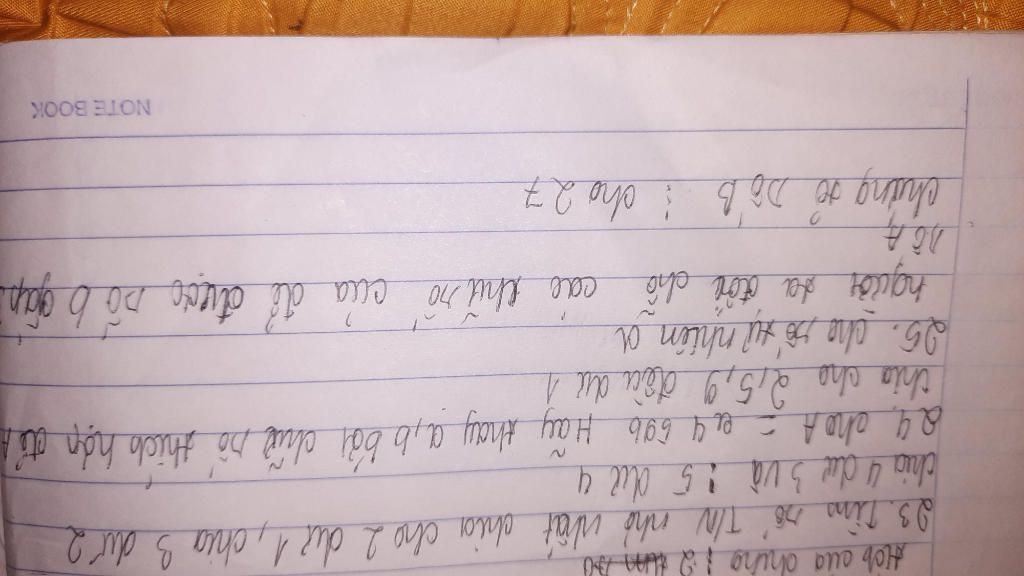 Hok qua chúng : 2
23. Tìm số TN nhỏ nhất chia cho 2 dư 1, chia 3 dư 2
chia 4 dư 3 và : 5 dư 4
24, cho A = a4 69b Hãy thay a, b bởi chữ số thích hợp để A
chia cho 2,5,9 đều dư 1
25. cho số tự nhiên a
người ta đổi chỗ các chữ số của để được số b gấp
số A
chứng tỏ số B ⋮ cho 27
NOTE BOOK